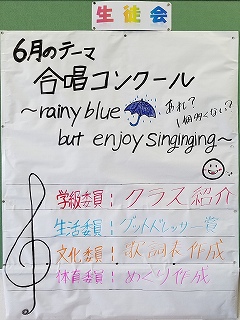 生徒会
6月のテーマ
合唱コンクール
～rainy blue
あれ？
1個多くない？
but enjoy singinging～
学級委員：クラス紹介
生活委員：グットドレッサー賞
文化委員：歌詞表作成
体育委員：めくり作成